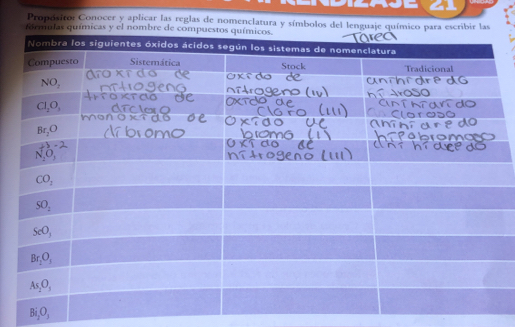 APRENDIZAJE 21 UNIDAD
Propósito: Conocer y aplicar las reglas de nomenclatura y símbolos del lenguaje químico para escribir las
fórmulas químicas y el nombre de compuestos químicos.
Tarea
Nombra los siguientes óxidos ácidos según los sistemas de nomenclatura
Compuesto Sistemática Stock Tradicional
NO₂ dioxido de nitrogeno oxido de nitrogeno (IV) anihidredo nitroso
Cl₂O₃ trioxido de dicloro oxido de cloro (III) anihidrido cloroso
Br₂O monoxido de dibromo oxido de bromo (I) anihidredo hipobromoso
+3 -2
N₂O₃ oxido de nitrogeno (III) anihidredo
CO₂
SO₂
SeO₃
Br₂O₃
As₂O₃
Bi₂O₃